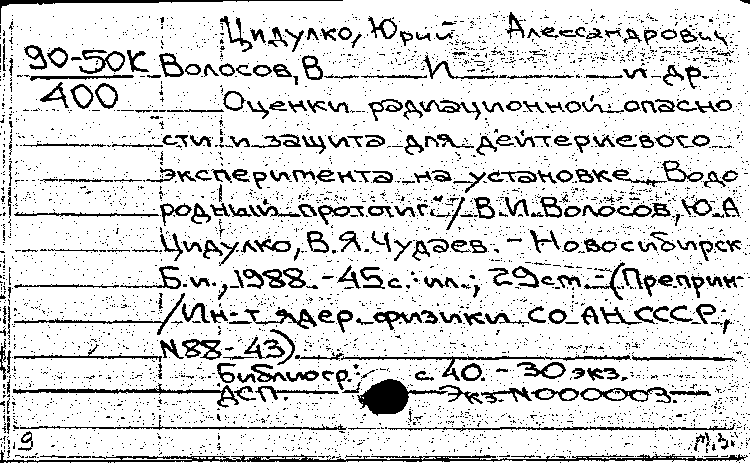 Цидулко, Юрий Александрович
90-50К Волосов, В И и др.
400 Оценки радиационной опасно
сти и защита для дейтериевого
эксперимента на установке „Водо
родный прототип" / В.И.Волосов, Ю.А
Цидулко, В.Я.Чудаев. - Новосибирск
Б.и., 1988. - 45с.: ил.; 29см. - (Препринт
/ Ин-т ядер. физики СО АН СССР;
N88-43).
Библиогр.: с. 40. - 30 экз.
ДСП. Экз. N000003
9 М.З.